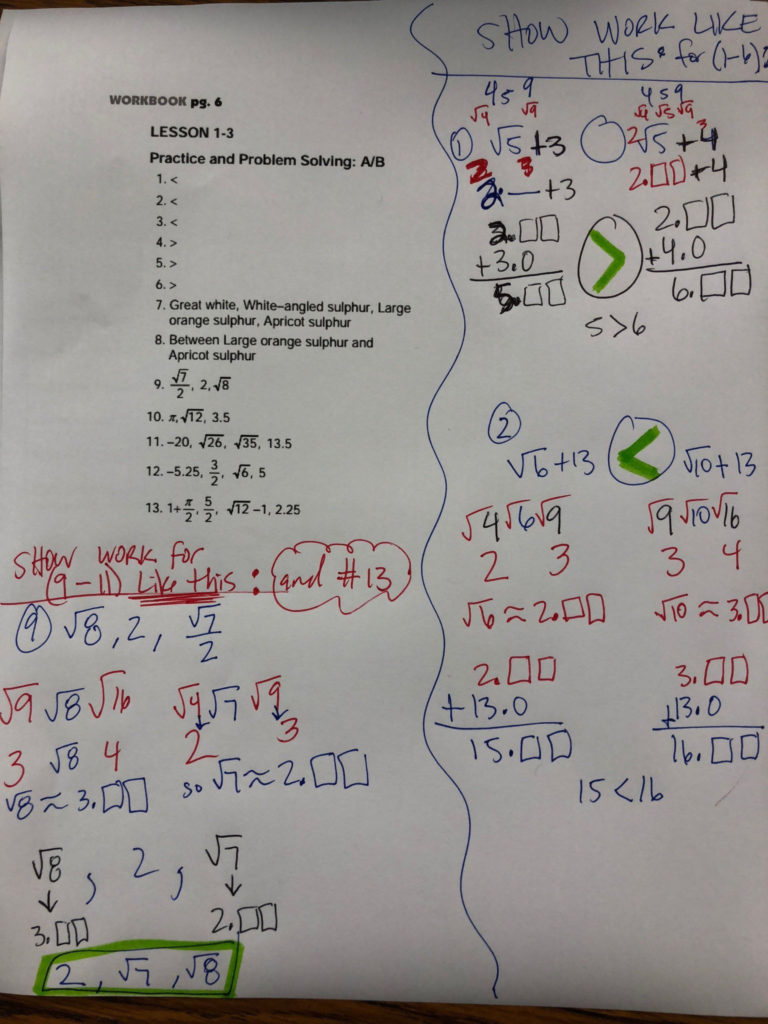 WORKBOOK pg. 6
LESSON 1-3
Practice and Problem Solving: A/B
1. <
2. <
3. <
4. >
5. >
6. >
7. Great white, White–angled sulphur, Large
orange sulphur, Apricot sulphur
8. Between Large orange sulphur and
Apricot sulphur
9. √7/2, 2, √8
10. π, √12, 3.5
11. –20, √26, √35, 13.5
12. –5.25, 3/2, √6, 5
13. 1+π/2, 5/2, √12 –1, 2.25
SHOW WORK FOR
(9 – 11) Like this : and #13
⑨ √8, 2, √7/2
√9 √8 √16 √4 √7 √9
3 √8 4 2 3
√8 ≈ 3.□□ so √7 ≈ 2.□□
√8 , 2 , √7
↓ ↓
3.□□ 2.□□
2, √7, √8
SHOW WORK LIKE
THIS: for (1-6)
4 5 9 4 5 9
√4 √9 √4 √5 √9
① √5 + 3 ◯ 2 √5 + 4 3
2 3 2.□□ + 4
2.__ + 3
2.□□ 2.□□
+3.0 > +4.0
5.□□ 6.□□
5 > 6
②
√6 + 13 < √10 + 13
√4 √6 √9 √9 √10 √16
2 3 3 4
√6 ≈ 2.□□ √10 ≈ 3.□□
2.□□ 3.□□
+13.0 +13.0
15.□□ 16.□□
15 < 16